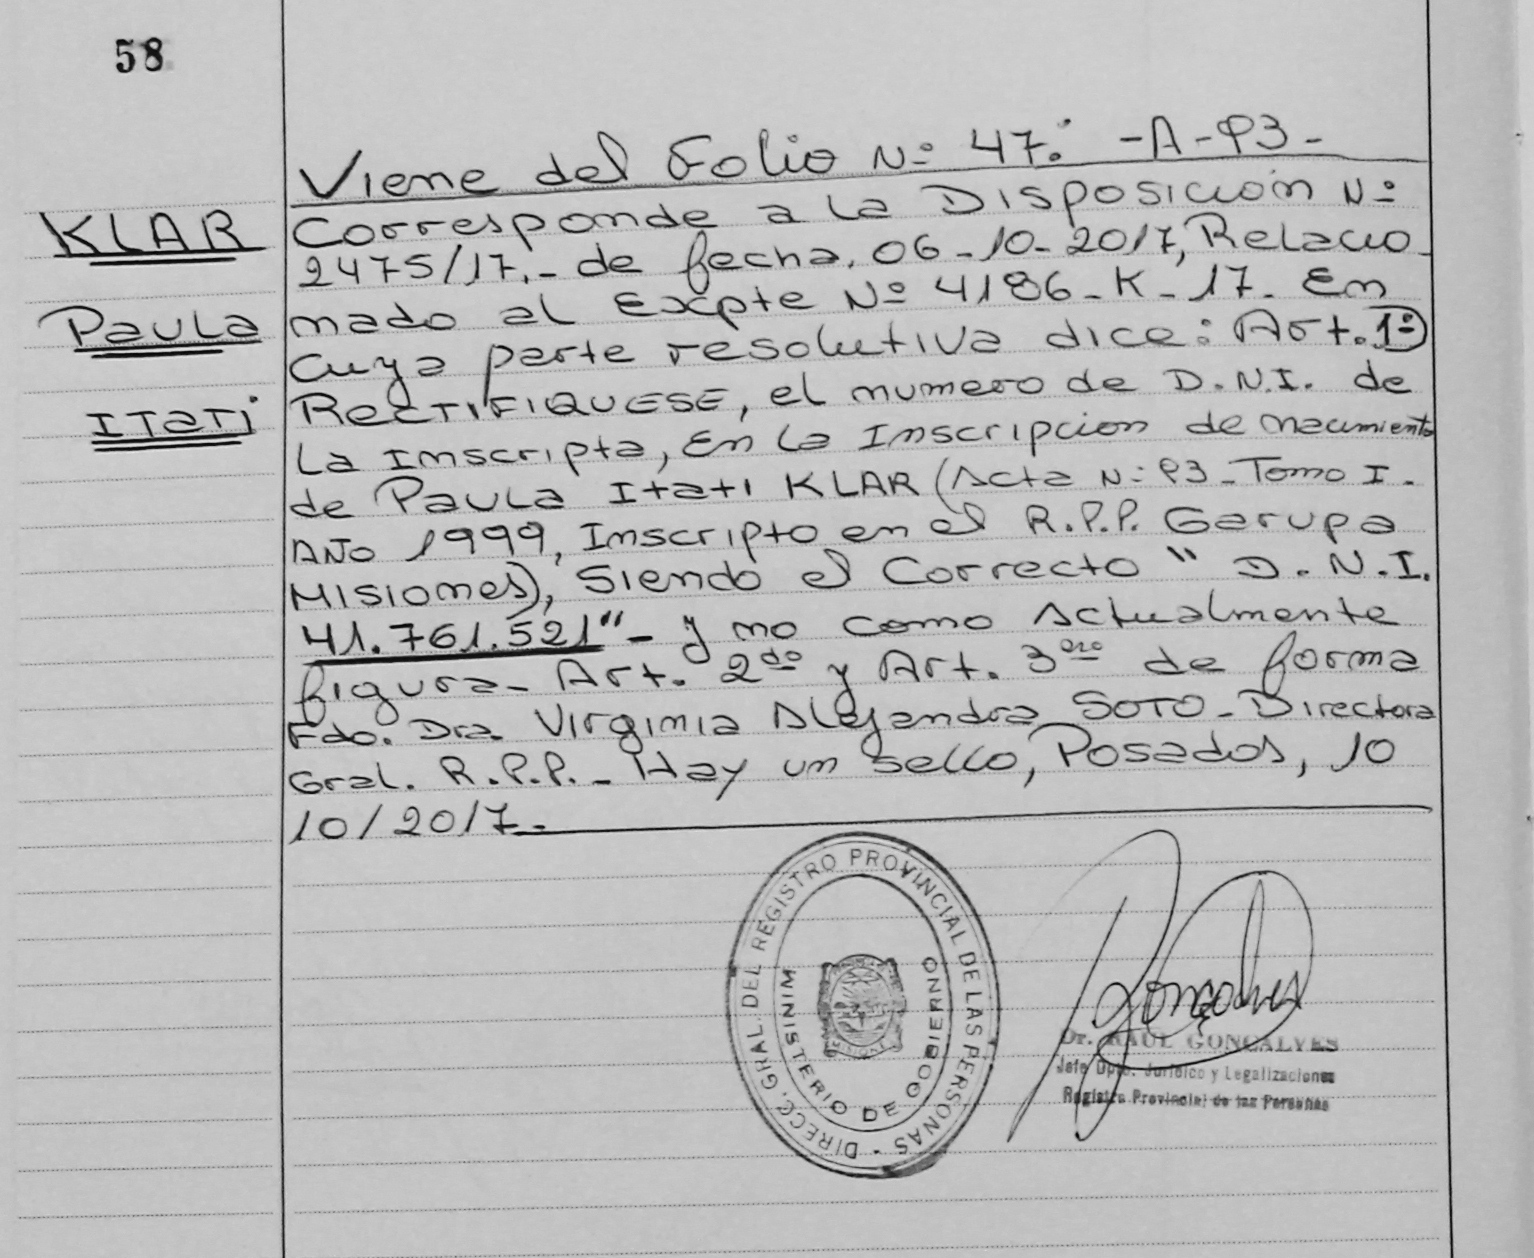 58
KLAR
Paula
Itati
Viene del Folio Nº 47: -A-93-
Corresponde a la Disposición Nº
2475/17.- de fecha, 06-10-2017, Relacio
nado al Expte Nº 4186-K-17. En
cuya parte resolutiva dice: Art. 1º)
RECTIFIQUESE, el numero de D.N.I. de
La Inscripta, En la Inscripcion de nacimiento
de Paula Itati KLAR (Acta Nº 93-Tomo I.
AÑo 1999, Inscripto en el R.P.P. Garupa
Misiones), Siendo el Correcto " D.N.I.
41.761.521"- y no como Actualmente
figura- Art. 2do y Art. 3ero de forma
Fdo. Dra. Virginia Alejandra SOTO-Directora
Gral. R.P.P.- Hay un sello, Posadas, 10
10/2017.-
DIRECC. GRAL. DEL REGISTRO PROVINCIAL DE LAS PERSONAS -
MINISTERIO DE GOBIERNO
MISIONES
Gonçalves
Dr. RAUL GONCALVES
Jefe Dpto. Jurídico y Legalizaciones
Registro Provincial de las Personas